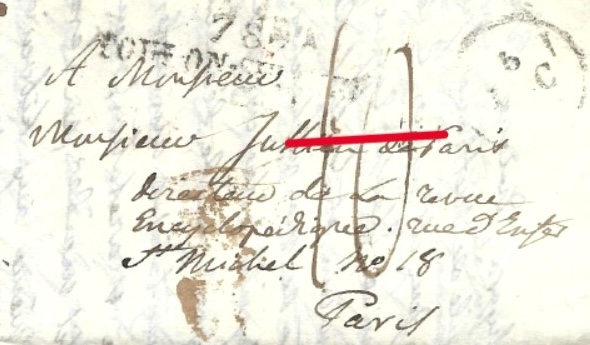 78
TOULON-SUR-
A Monsieur
Monsieur Jullien de Paris
Directeur de La revue
Encyclopédique. rue d'Enfer
St Michel no 18
Paris